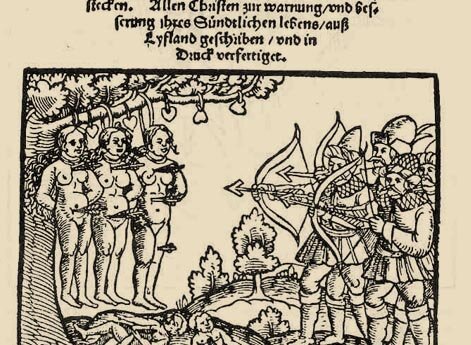 stecken. Allen Christen zur warnung/und bes-
serung ihres Sündtlichen lebens/auß
Lyfland geschriben/und in
Druck verfertiget.